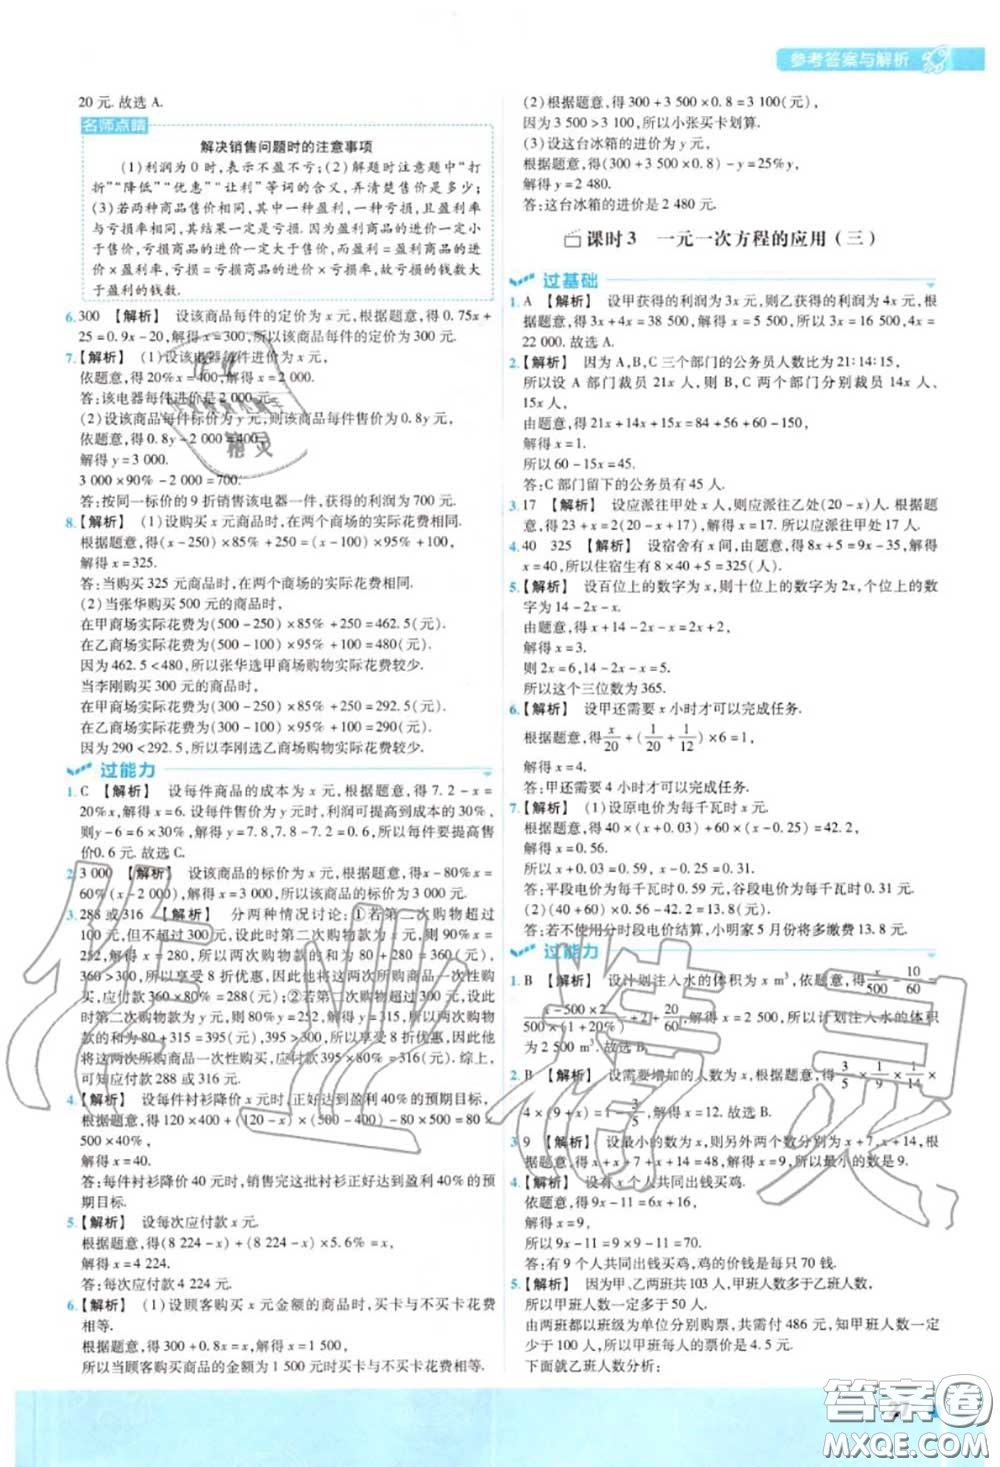 参考答案与解析
20 元. 故选 A.
名师点睛
解决销售问题时的注意事项
(1)利润为 0 时,表示不盈不亏;(2)解题时注意题中“打
折”“降低”“优惠”“让利”等词的含义,弄清楚售价是多少;
(3)若两种商品售价相同,其中一种盈利,一种亏损,且盈利率
与亏损率相同,其结果一定是亏损. 因为盈利商品的进价一定小
于售价,亏损商品的进价一定大于售价,而盈利 = 盈利商品的进
价×盈利率,亏损 = 亏损商品的进价×亏损率,故亏损的钱数大
于盈利的钱数.
6. 300 【解析】 设该商品每件的定价为 x 元,根据题意,得 0.75x +
25 = 0.9x - 20,解得 x = 300,所以该商品每件的定价为 300 元.
7. 【解析】 (1)设该电器每件进价为 x 元,
依题意,得 20%x = 400,解得 x = 2 000.
答:该电器每件进价为 2 000 元.
(2)设该商品每件标价为 y 元,则该商品每件售价为 0.8y 元,
依题意,得 0.8y - 2 000 = 400,
解得 y = 3 000.
3 000×90% - 2 000 = 700.
答:按同一标价的 9 折销售该电器一件,获得的利润为 700 元.
8. 【解析】 (1)设购买 x 元商品时,在两个商场的实际花费相同.
根据题意,得(x - 250)×85% + 250 = (x - 100)×95% + 100,
解得 x = 325.
答:当购买 325 元商品时,在两个商场的实际花费相同.
(2)当张华购买 500 元的商品时,
在甲商场实际花费为(500 - 250)×85% + 250 = 462.5(元),
在乙商场实际花费为(500 - 100)×95% + 100 = 480(元),
因为 462.5 < 480,所以张华选甲商场购物实际花费较少.
当李刚购买 300 元的商品时,
在甲商场实际花费为(300 - 250)×85% + 250 = 292.5(元),
在乙商场实际花费为(300 - 100)×95% + 100 = 290(元),
因为 290 < 292.5,所以李刚选乙商场购物实际花费较少.
过能力
1. C 【解析】 设每件商品的成本为 x 元,根据题意,得 7.2 - x =
20%x,解得 x = 6. 设每件售价为 y 元时,利润可提高到成本的 30%,
则 y - 6 = 6×30%,解得 y = 7.8,7.8 - 7.2 = 0.6,所以每件要提高售
价0.6 元. 故选 C.
2. 3 000 【解析】 设该商品的标价为 x 元,根据题意,得 80%x -
60% (x - 2 000),解得 x = 3 000,所以该商品的标价为 3 000 元.
3. 288 或316 【解析】 分两种情况讨论:①若第二次购物超过
100 元,但不超过 300 元,设此时第二次购物款为 x 元,则 90%x =
252,解得 x = 280,所以两次购物款的和为 80 + 280 = 360(元),
360 > 300,所以享受 8 折优惠,因此他将这两次所购商品一次性购买,
应付款 360×80% = 288(元);②若第二次购物超过 300 元,设此
时购物款为 y 元,则 80%y = 252,解得 y = 315,所以两次购物款
的和为 80 + 315 = 395(元),395 > 300,所以享受 8 折优惠,因此他
将这两次所购商品一次性购买,应付款 395×80% = 316(元). 综上,
可知应付款 288 或 316 元.
4. 【解析】 设每件衬衫降价 x 元时,正好达到盈利40%的预期目标,
根据题意,得 120×400 + (120 - x)×(500 - 400) - 80×500 = 80×
500×40%,
解得 x = 40.
答:每件衬衫降价 40 元时,销售完这批衬衫正好达到盈利 40%的预
期目标.
5. 【解析】 设每次应付款 x 元.
根据题意,得(8 224 - x) + (8 224 - x)×5.6% = x,
解得 x = 4 224.
答:每次应付款 4 224 元.
6. 【解析】 (1)设顾客购买 x 元金额的商品时,买卡与不买卡花费
相等.
根据题意,得 300 + 0.8x = x,解得 x = 1 500,
所以当顾客购买商品的金额为 1 500 元时买卡与不买卡花费相等.
(2)根据题意,得 300 + 3 500×0.8 = 3 100(元),
因为 3 500 > 3 100,所以小张买卡划算.
(3)设这台冰箱的进价为 y 元,
根据题意,得(300 + 3 500×0.8) - y = 25%y,
解得 y = 2 480.
答:这台冰箱的进价是 2 480 元.
课时 3 一元一次方程的应用(三)
过基础
1. A 【解析】 设甲获得的利润为 3x 元,则乙获得的利润为 4x 元,根
据题意,得 3x + 4x = 38 500,解得 x = 5 500,所以 4x =
22 000. 故选 A.
2. 【解析】 因为 A,B,C 三个部门的公务员人数比为 21:14:15,
所以设 A 部门裁员 21x 人,则 B,C 两个部门分别裁员 14x 人、
15x 人,
由题意,得 21x + 14x + 15x = 84 + 56 + 60,
解得 x = 1,
所以 60 - 15x = 45.
答:C 部门留下的公务员有 45 人.
3. 17 【解析】 设应派往甲处 x 人,则应派往乙处(20 - x)人. 根据题
意,得 23 + x = 2(20 - x + 17),解得 x = 17. 所以应派往甲处 17 人.
4. 40 325 【解析】 设宿舍有 x 间,由题意,得 8x + 5 = 9x - 35,解得
x = 40,所以住宿生有 8×40 + 5 = 325(人).
5. 【解析】 设百位上的数字为 x,则十位上的数字为 2x,个位上的数
字为 14 - 2x - x.
由题意,得 14 - 2x - x = x + 2x + 2,
解得 x = 3.
则 2x = 6,14 - 2x - x = 5,
所以这个三位数为 365.
6. 【解析】 设甲还需要 x 小时才可以完成任务.
根据题意,得 x/20 + (1/20 + 1/12)×6 = 1,
解得 x = 4.
答:甲还需要 4 小时才可以完成任务.
7. 【解析】 (1)设原电价为每千瓦时 x 元.
根据题意,得 40×(x + 0.03) + 60×(x - 0.25) = 42.2,
解得 x = 0.56.
所以 x + 0.03 = 0.59,x - 0.25 = 0.31.
答:平段电价为每千瓦时 0.59 元,谷段电价为每千瓦时 0.31 元.
(2)(40 + 60)×0.56 - 42.2 = 13.8(元).
答:若不使用分时段电价结算,小明家 5 月份将多缴费 13.8 元.
过能力
1. B 【解析】 设计划注入水的体积为 x m³,依题意,得 x/500 - 10/60 =
(x - 500×2)/(500×(1 + 20%)) + 2 + 20/60,解得 x = 2 500,所以计划注入水的体积
为 2 500 m³. 故选 B.
2. B 【解析】 设需要增加的人数为 x,根据题意,得 3/5 × 1/9 × 1/14 ×
4×(9 + x) = 1 - 3/5,解得 x = 12. 故选 B.
3. 9 【解析】 设最小的数为 x,则另外两个数分别为 x + 7,x + 14,根
据题意,得 x + x + 7 + x + 14 = 48,解得 x = 9,所以最小的数是 9.
4. 【解析】 设有 x 个人共同出钱买鸡.
依题意,得 9x - 11 = 6x + 16,
解得 x = 9,
所以 9x - 11 = 9×9 - 11 = 70.
答:有 9 个人共同出钱买鸡,鸡的价钱是每只 70 钱.
5. 【解析】 因为甲、乙两班共 103 人,甲班人数多于乙班人数,
所以甲班人数一定多于 50 人.
由两班都以班级为单位分别购票,共需付 486 元,知甲班人数一定
少于 100 人,所以甲班每人的票价是 4.5 元.
下面就乙班人数分析:
作业精灵
答案圈
MXQE.COM